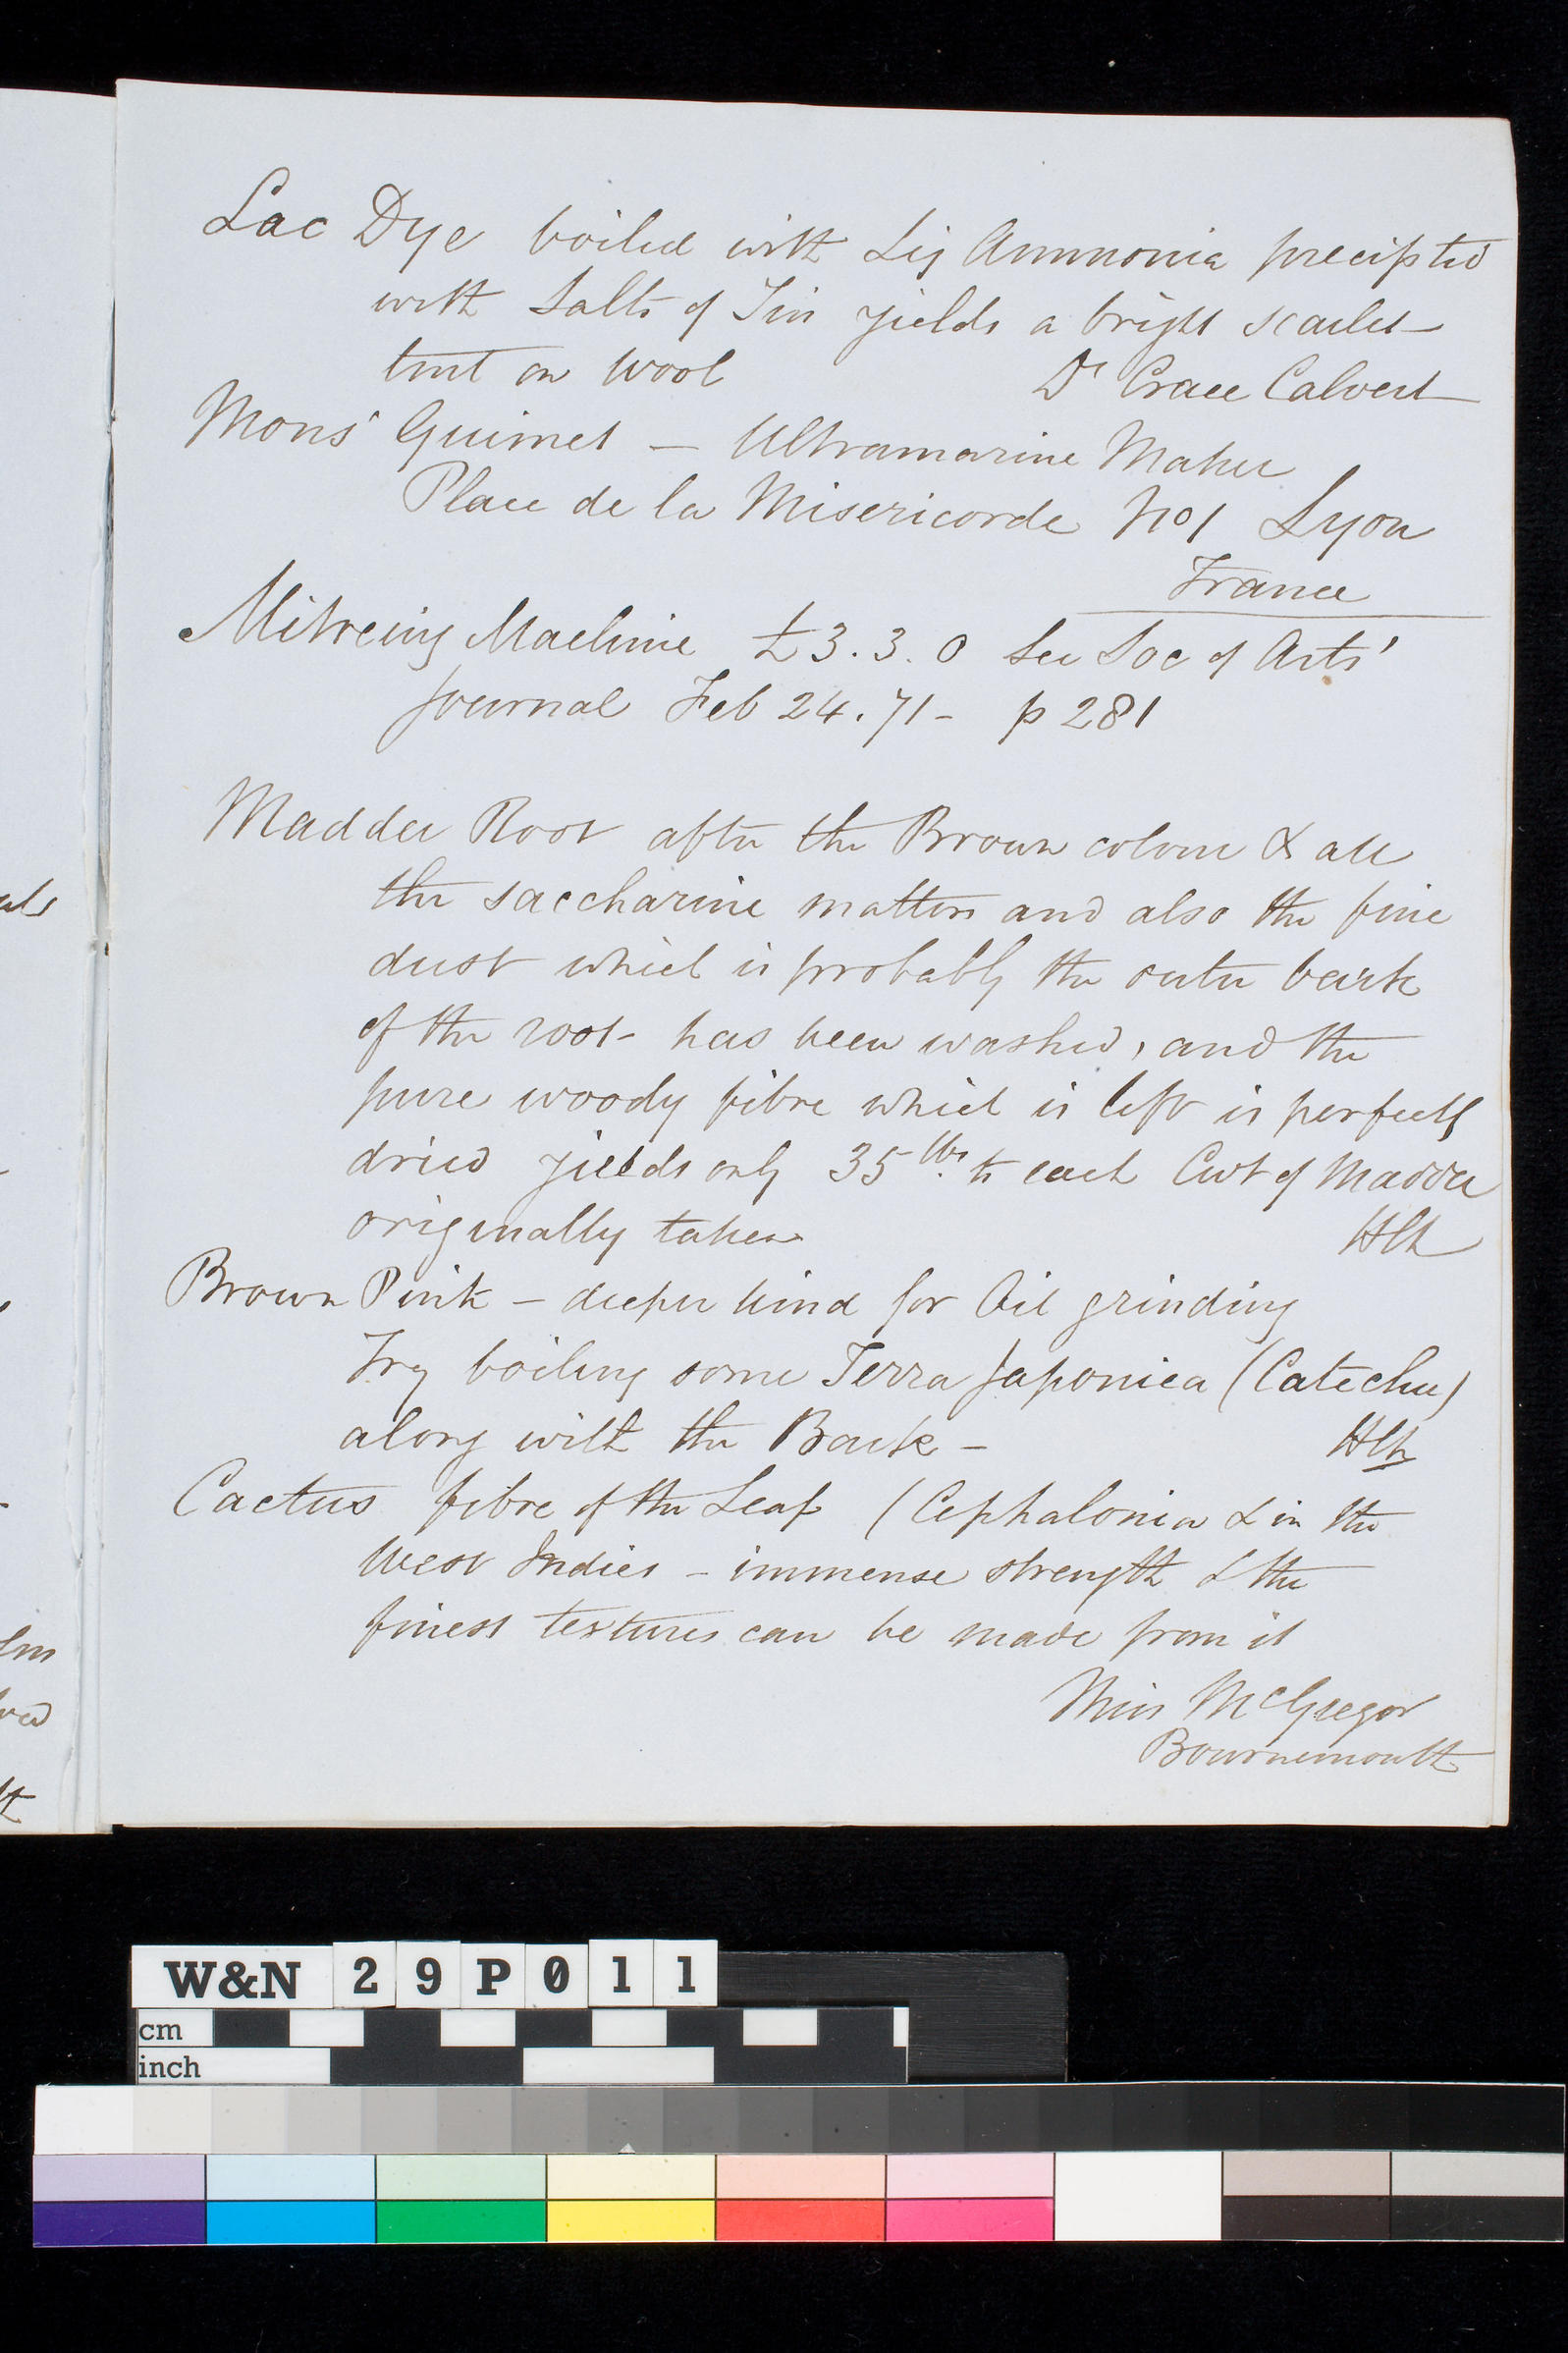 Lac Dye boiled with Liq Ammonia precipted
with Salts of Tin yields a bright scarlet
tint on wool Dr Crace Calvert
Monsr Guimet — Ultramarine Maker
Place de la Misericorde No 1 Lyon
France
Mitreing Machine £3.3.0 See Soc of Arts'
Journal Feb 24.71 - p 281
Madder Root after the Brown colour & all
the saccharine matters and also the fine
dust which is probably the outer bark
of the root - has been washed, and the
pure woody fibre which is left is perfectly
dried yields only 35 lbs to each Cwt of Madder
originally taken
Brown Pink - deeper kind for Oil grinding
Try boiling some Terra Japonica (Catechu)
along with the Bark -
Cactus fibre of the Leaf (Cephalonia & in the
West Indies - immense strength & the
finest textures can be made from it
Miss McGregor
Bournemouth
W&N 29P011
cm
inch